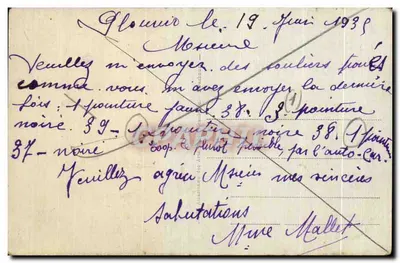 le 19 Juin 1935
Veuillez m envoyez des souliers
comme vous m avez envoyer la dernière
fois : 1 pointure jaune 38 - 3 pointure
noire 39 - 1 pointure noire 38. 1
37 - noire possible, par l'auto-car.
Veuillez agréer mes sincères
salutations
Mme Mallet